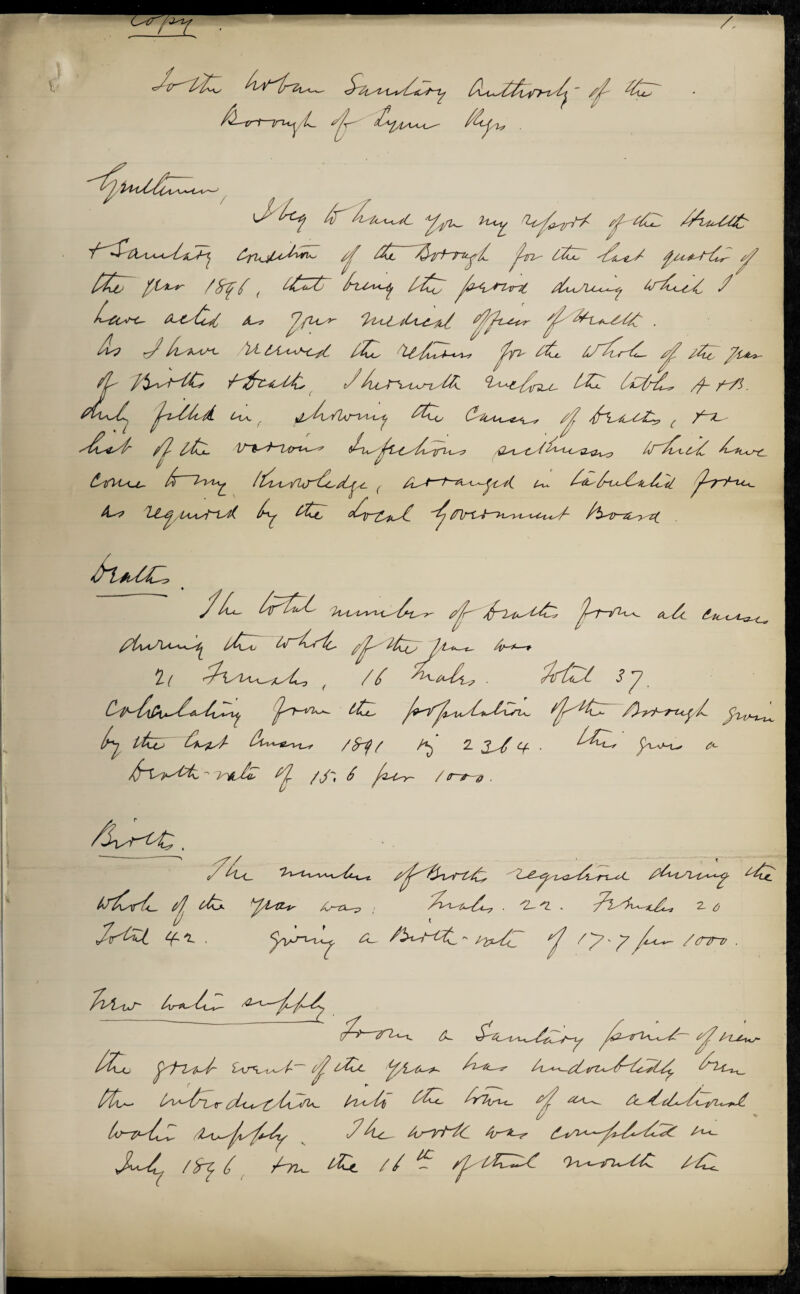 Copy. 1.
To the Urban Sanitary Authority of the
Borough of Lyme Regis.
Gentlemen,
I beg to hand you my report of the Health
& Sanitary condition of the Borough for the last quarter of
the year 1896, that being the period during which I
have acted as your medical officer of Health.
As I have received the returns for the whole of the year
of Births & Deaths, I herewith enclose the tables A & B.
duly filled in, showing the Causes of Deaths, & a
list of the various Infectious sicknesses which have
come to my Knowledge, arranged in tabulated form
as required by the Local Government Board.
Deaths.
The total number of Deaths from all causes
during the whole of the year was
21 Females, 16 Males. Total 37.
Calculating from the population of the Borough given
by the last Census 1891 viz 2364. this gives a
Death-rate of 15.6 per 1000.
Births.
The number of Births registered during the
whole of the year was: Males. 22. Females 20
Total 42. giving a Birth-rate of 17.7 per 1000.
New water supply.
From a Sanitary point of view
the great event of the year has undoubtedly been
the introduction into the town of an additional
water supply. The work was completed in
July 1896, & on the 16th of that month the